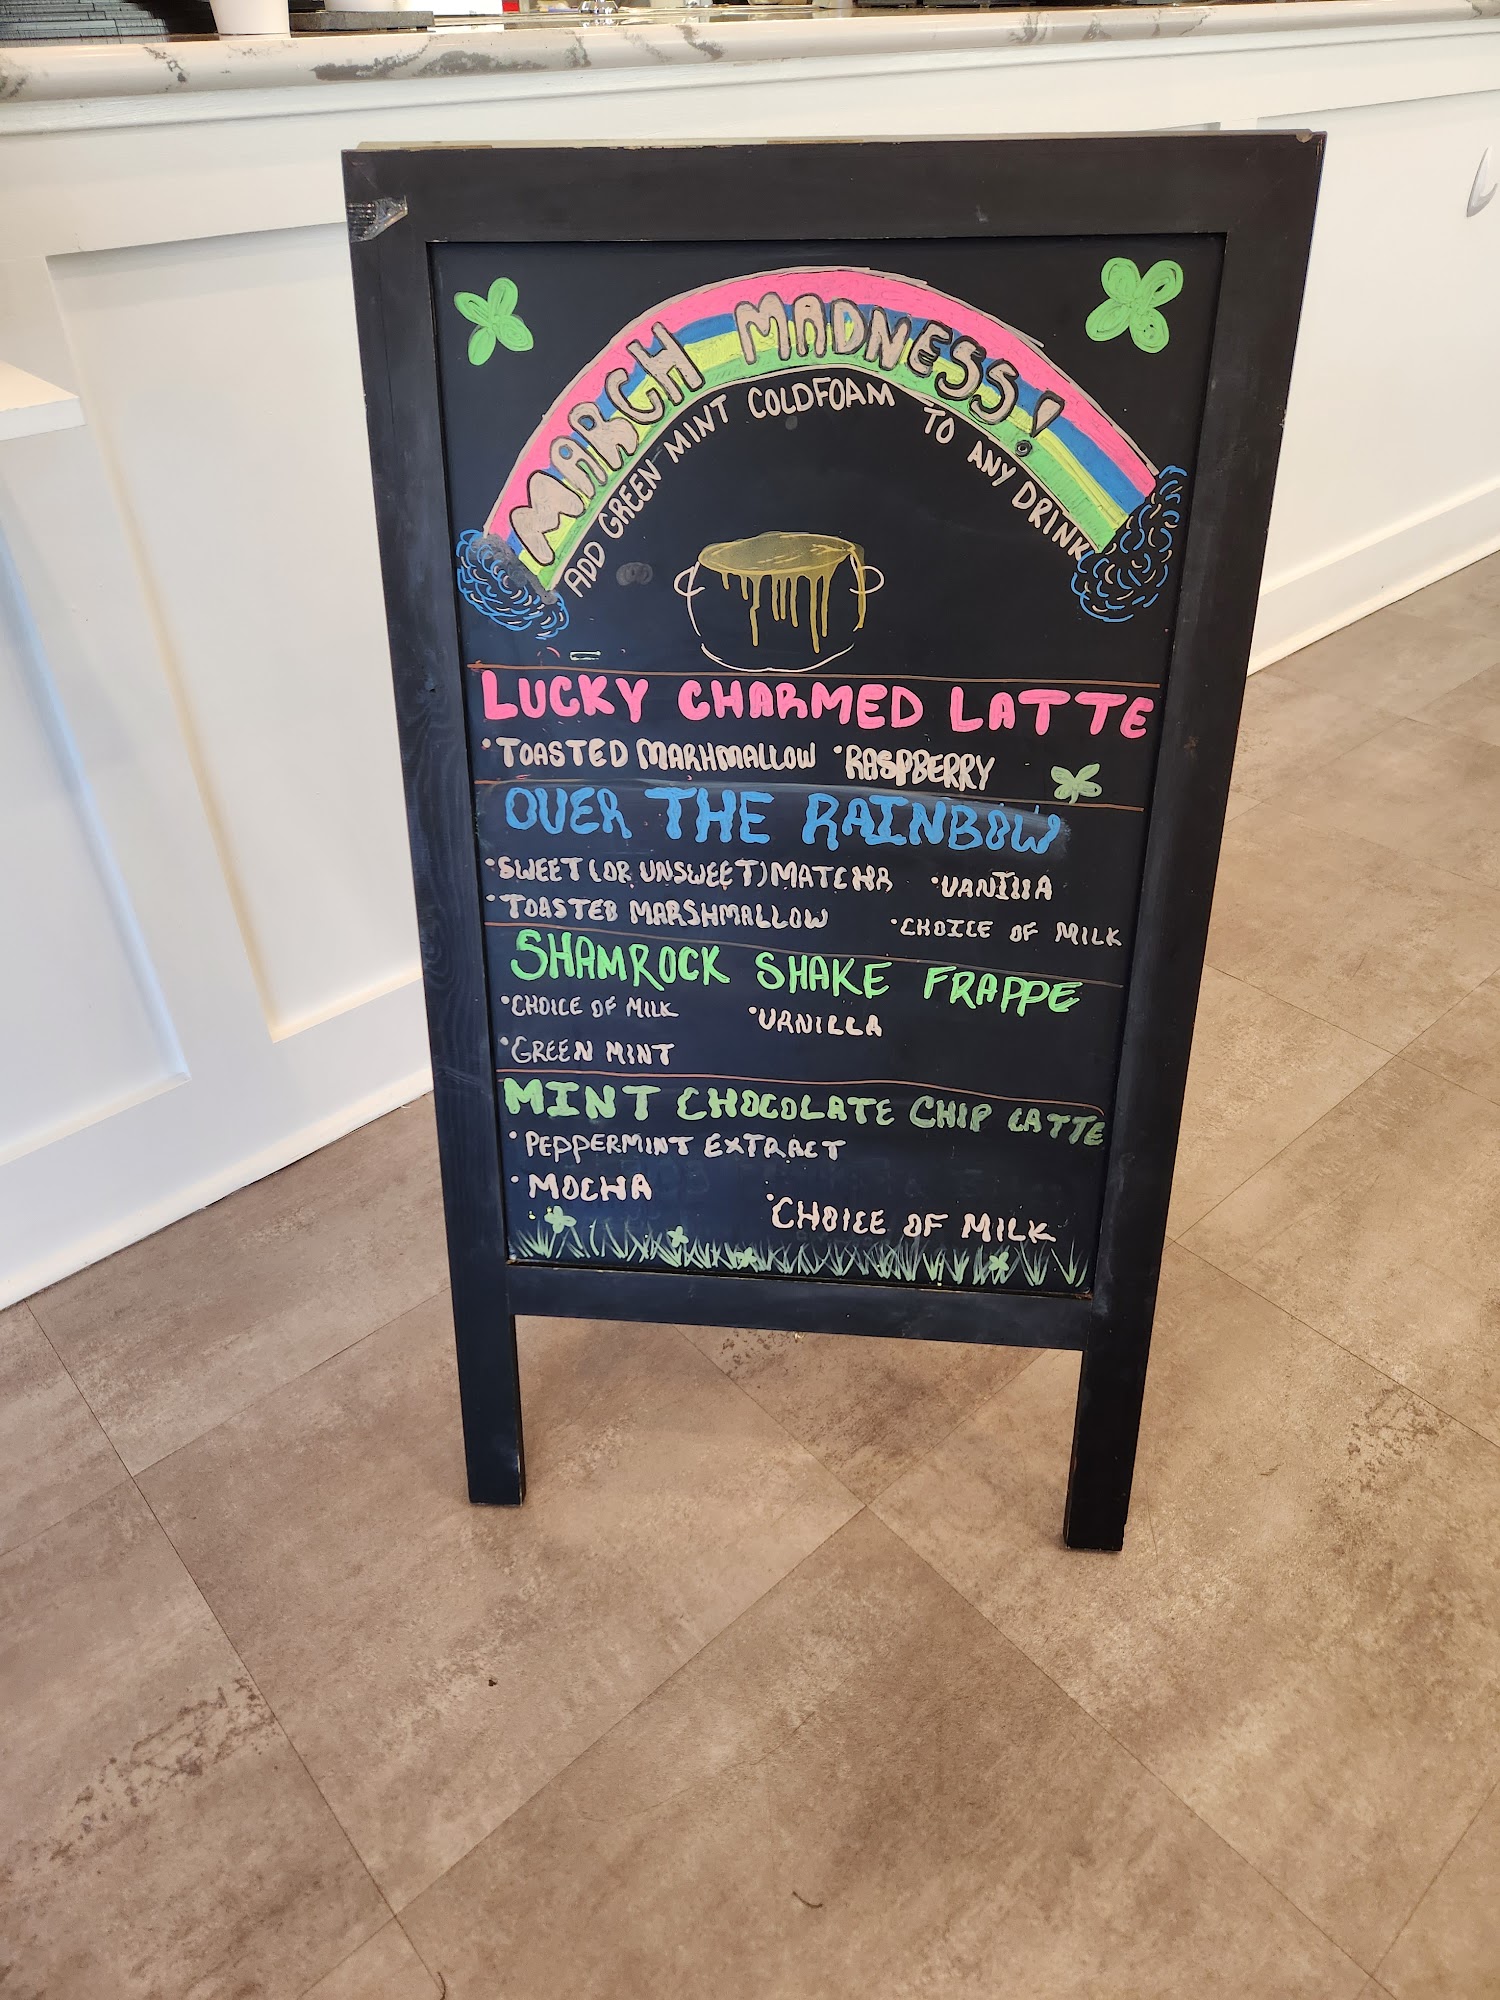 MARCH MADNESS!
ADD GREEN MINT COLDFOAM TO ANY DRINK
LUCKY CHARMED LATTE
•TOASTED MARHMALLOW •RASPBERRY
OVER THE RAINBOW
•SWEET (OR UNSWEET) MATCHA •VANILLA
•TOASTED MARSHMALLOW •CHOICE OF MILK
SHAMROCK SHAKE FRAPPE
•CHOICE OF MILK •VANILLA
•GREEN MINT
MINT CHOCOLATE CHIP LATTE
•PEPPERMINT EXTRACT
•MOCHA •CHOICE OF MILK